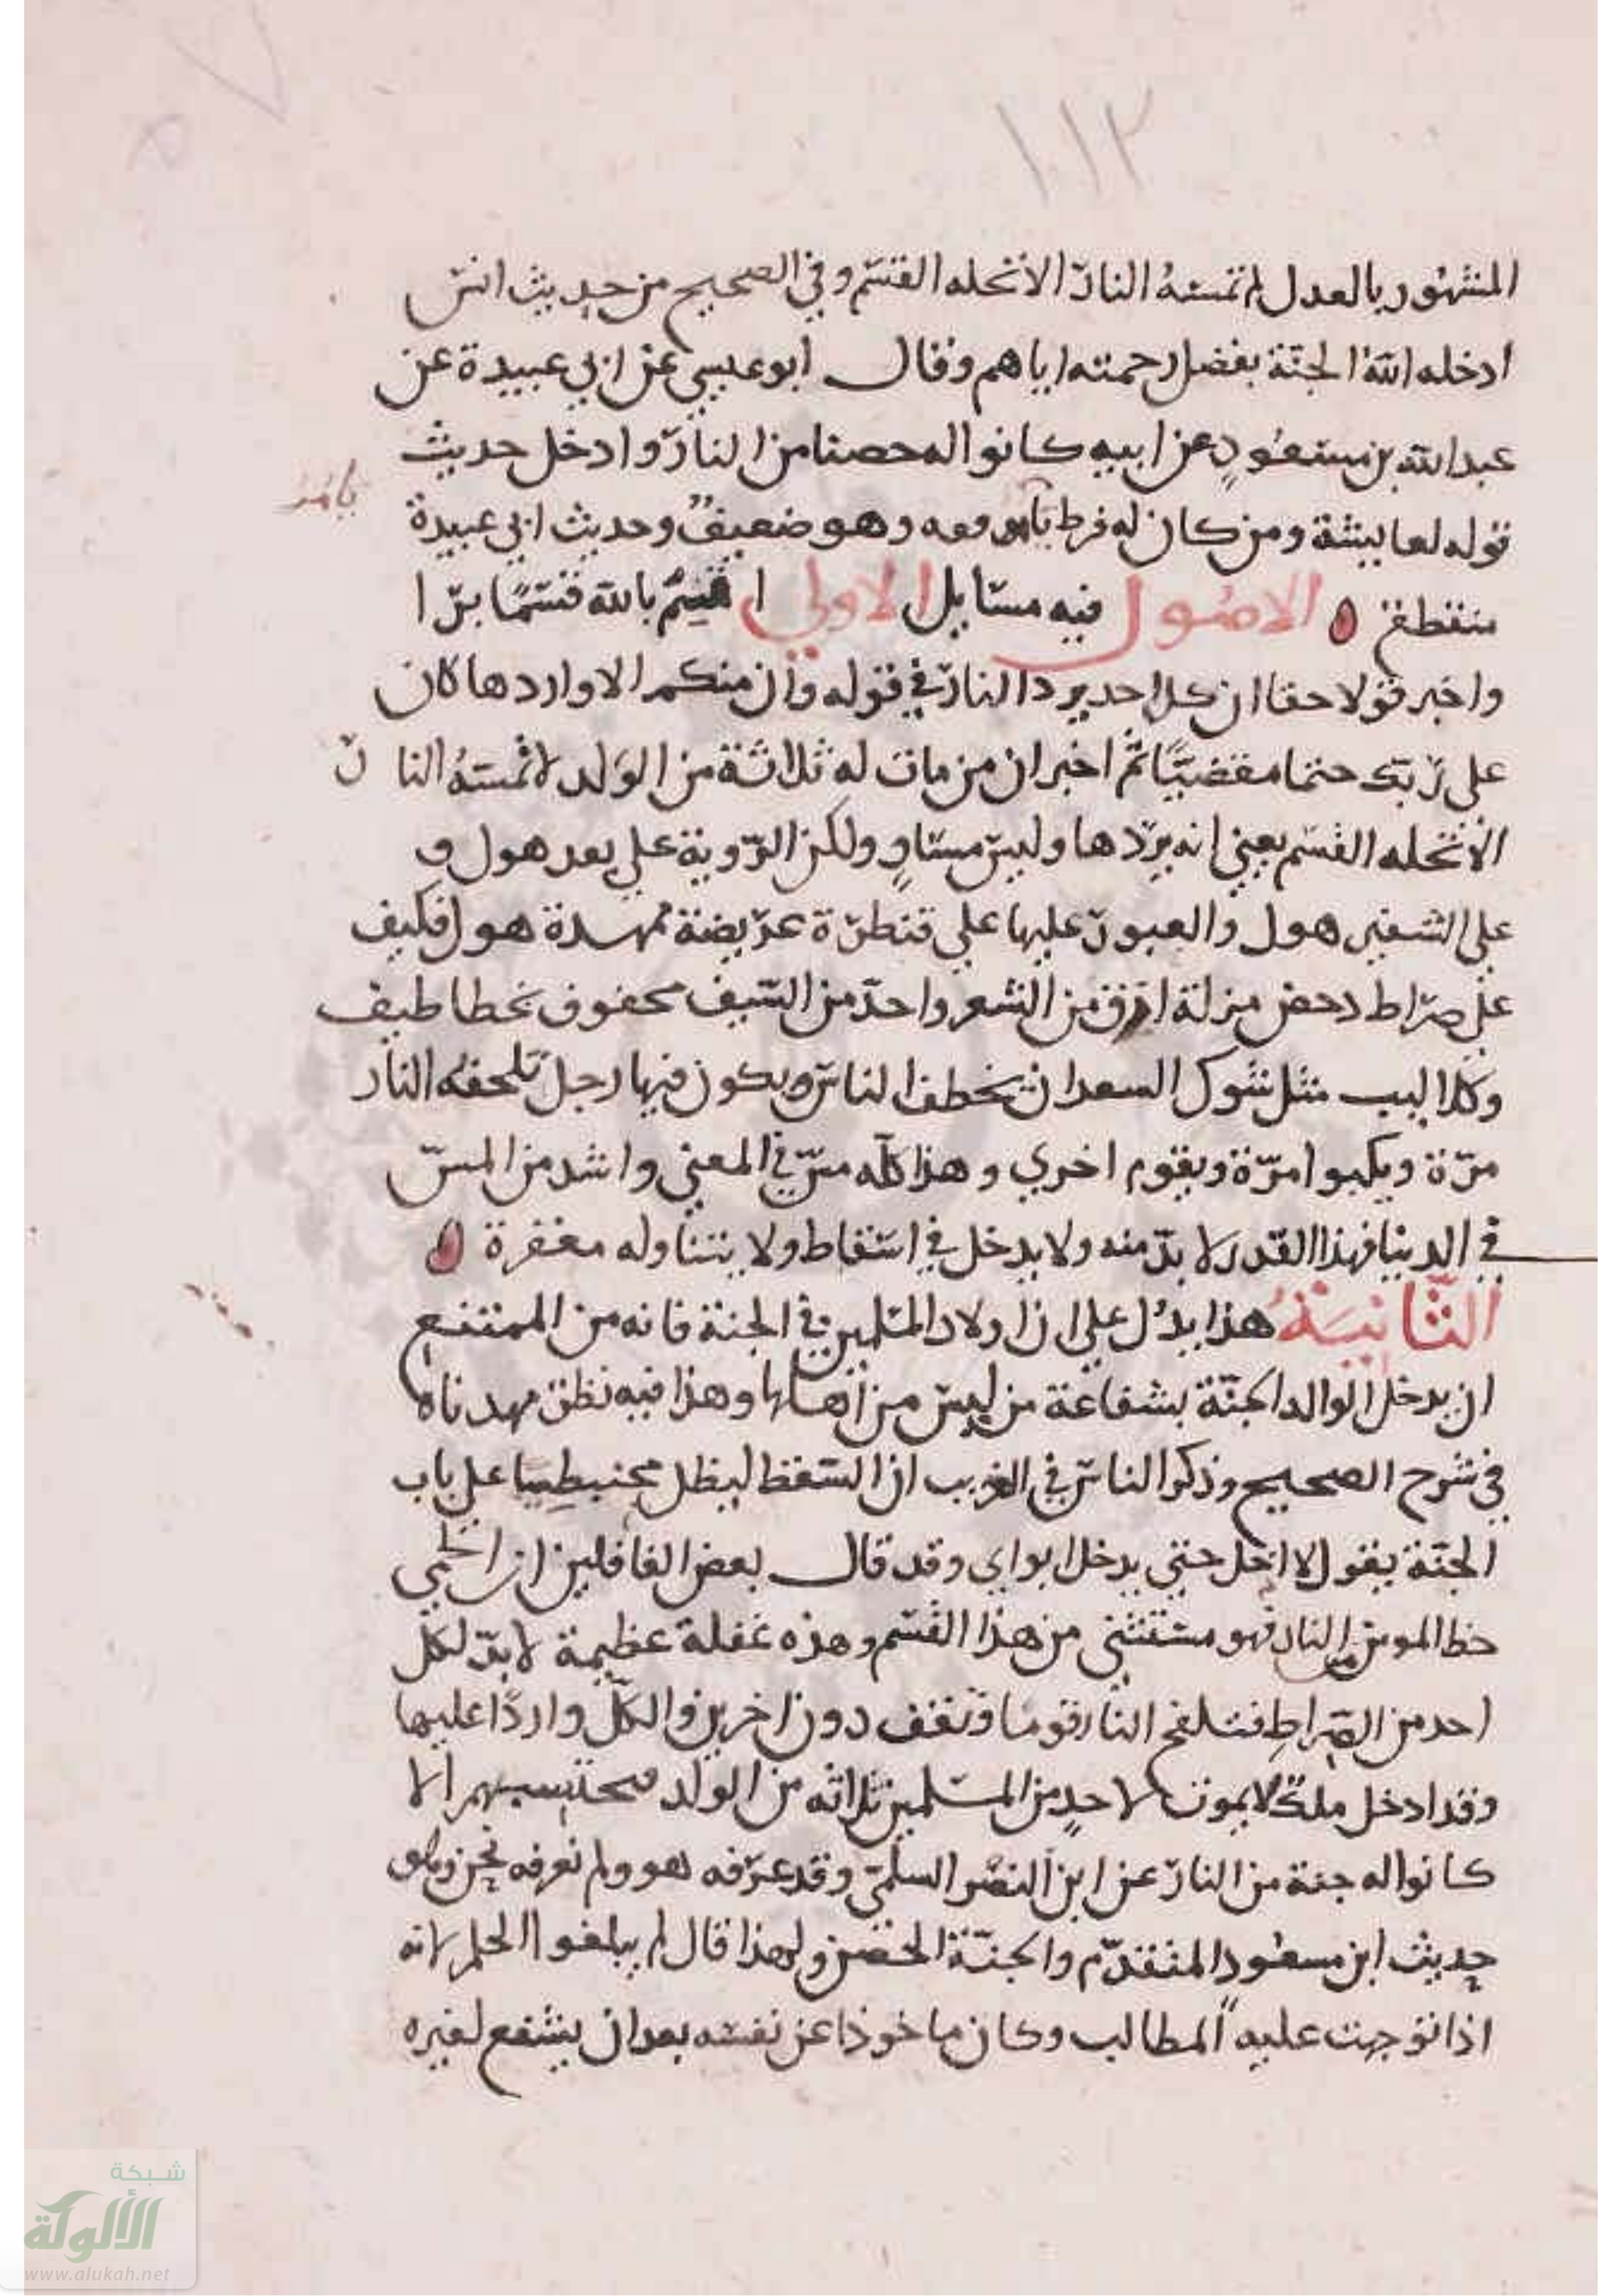 ١١٣
المشهور بالعدل لم تمسه النار الا تحله القسم وفي الصحيح من حديث انس
ادخله الله الجنة بفضل رحمته اياهم وقال ابو عيسي عن ابي عبيدة عن
عبد الله بن مسعود عن ابيه كانوا له حصنا من النار وادخل حديث
قوله لعايشة ومن كان له فرط يا موفقه وهو ضعيف وحديث ابي عبيدة
منقطع الاصول فيه مسايل الاولي اقسم بالله قسما برا
واخبر قولا حقا ان كل احد يرد النار في قوله وان منكم الا واردها كان
علي ربك حتما مقضيا ثم اخبر ان من مات له ثلاثة من الولد لا تمسه النار
الا تحله القسم يعني انه يردها وليس مساو ولكن الروية علي بعد هول و
علي الشفير هول والعبور عليها علي قنطرة عريضة ممهدة هول فكيف
علي صراط دحض مزلة ادق من الشعر واحد من السيف محفوف بخطاطيف
وكلاليب مثل شوك السعدان تخطف الناس ويكون فيها رجل تلحفه النار
مرة ويكبوا مرة ويقوم اخري وهذا كله مس في المعني واشد من المس
في الدنيا فهذا القدر لا بد منه ولا يدخل في اسقاط ولا يتناوله مغفرة
الثانية هذا يدل علي ان اولاد المسلمين في الجنة فانه من الممتنع
ان يدخل الوالد الجنة بشفاعة من ليس من اهلها وهذا فيه نظر مهدناه
في شرح الصحيح وذكر الناس في الغريب ان السقط ليظل محنبطيا علي باب
الجنة يقول لا ادخل حتي يدخل ابواي وقد قال بعض الغافلين ان الحمي
حظ المومن من النار فهو مستثني من هذا القسم وهذه غفلة عظيمة لا بد لكل
احد من الصراط فتلفح النار قوما وتقف دون اخرين والكل واردا عليها
وقد ادخل ملك لا يموت لاحد من المسلمين ثلاثه من الولد فيحتسبهم الا
كانوا له جنة من النار عن ابن النضر السلمي وقد عرفه هو ولم نعرفه نحن وهو
حديث ابن مسعود المتقدم والجنة الحصن ولهذا قال لم يبلغوا الحلم لانه
اذا توجهت عليه المطالب وكان ماخوذا عن نفسه بعد ان يشفع لغيره
شبكة
الألوكة
www.alukah.net